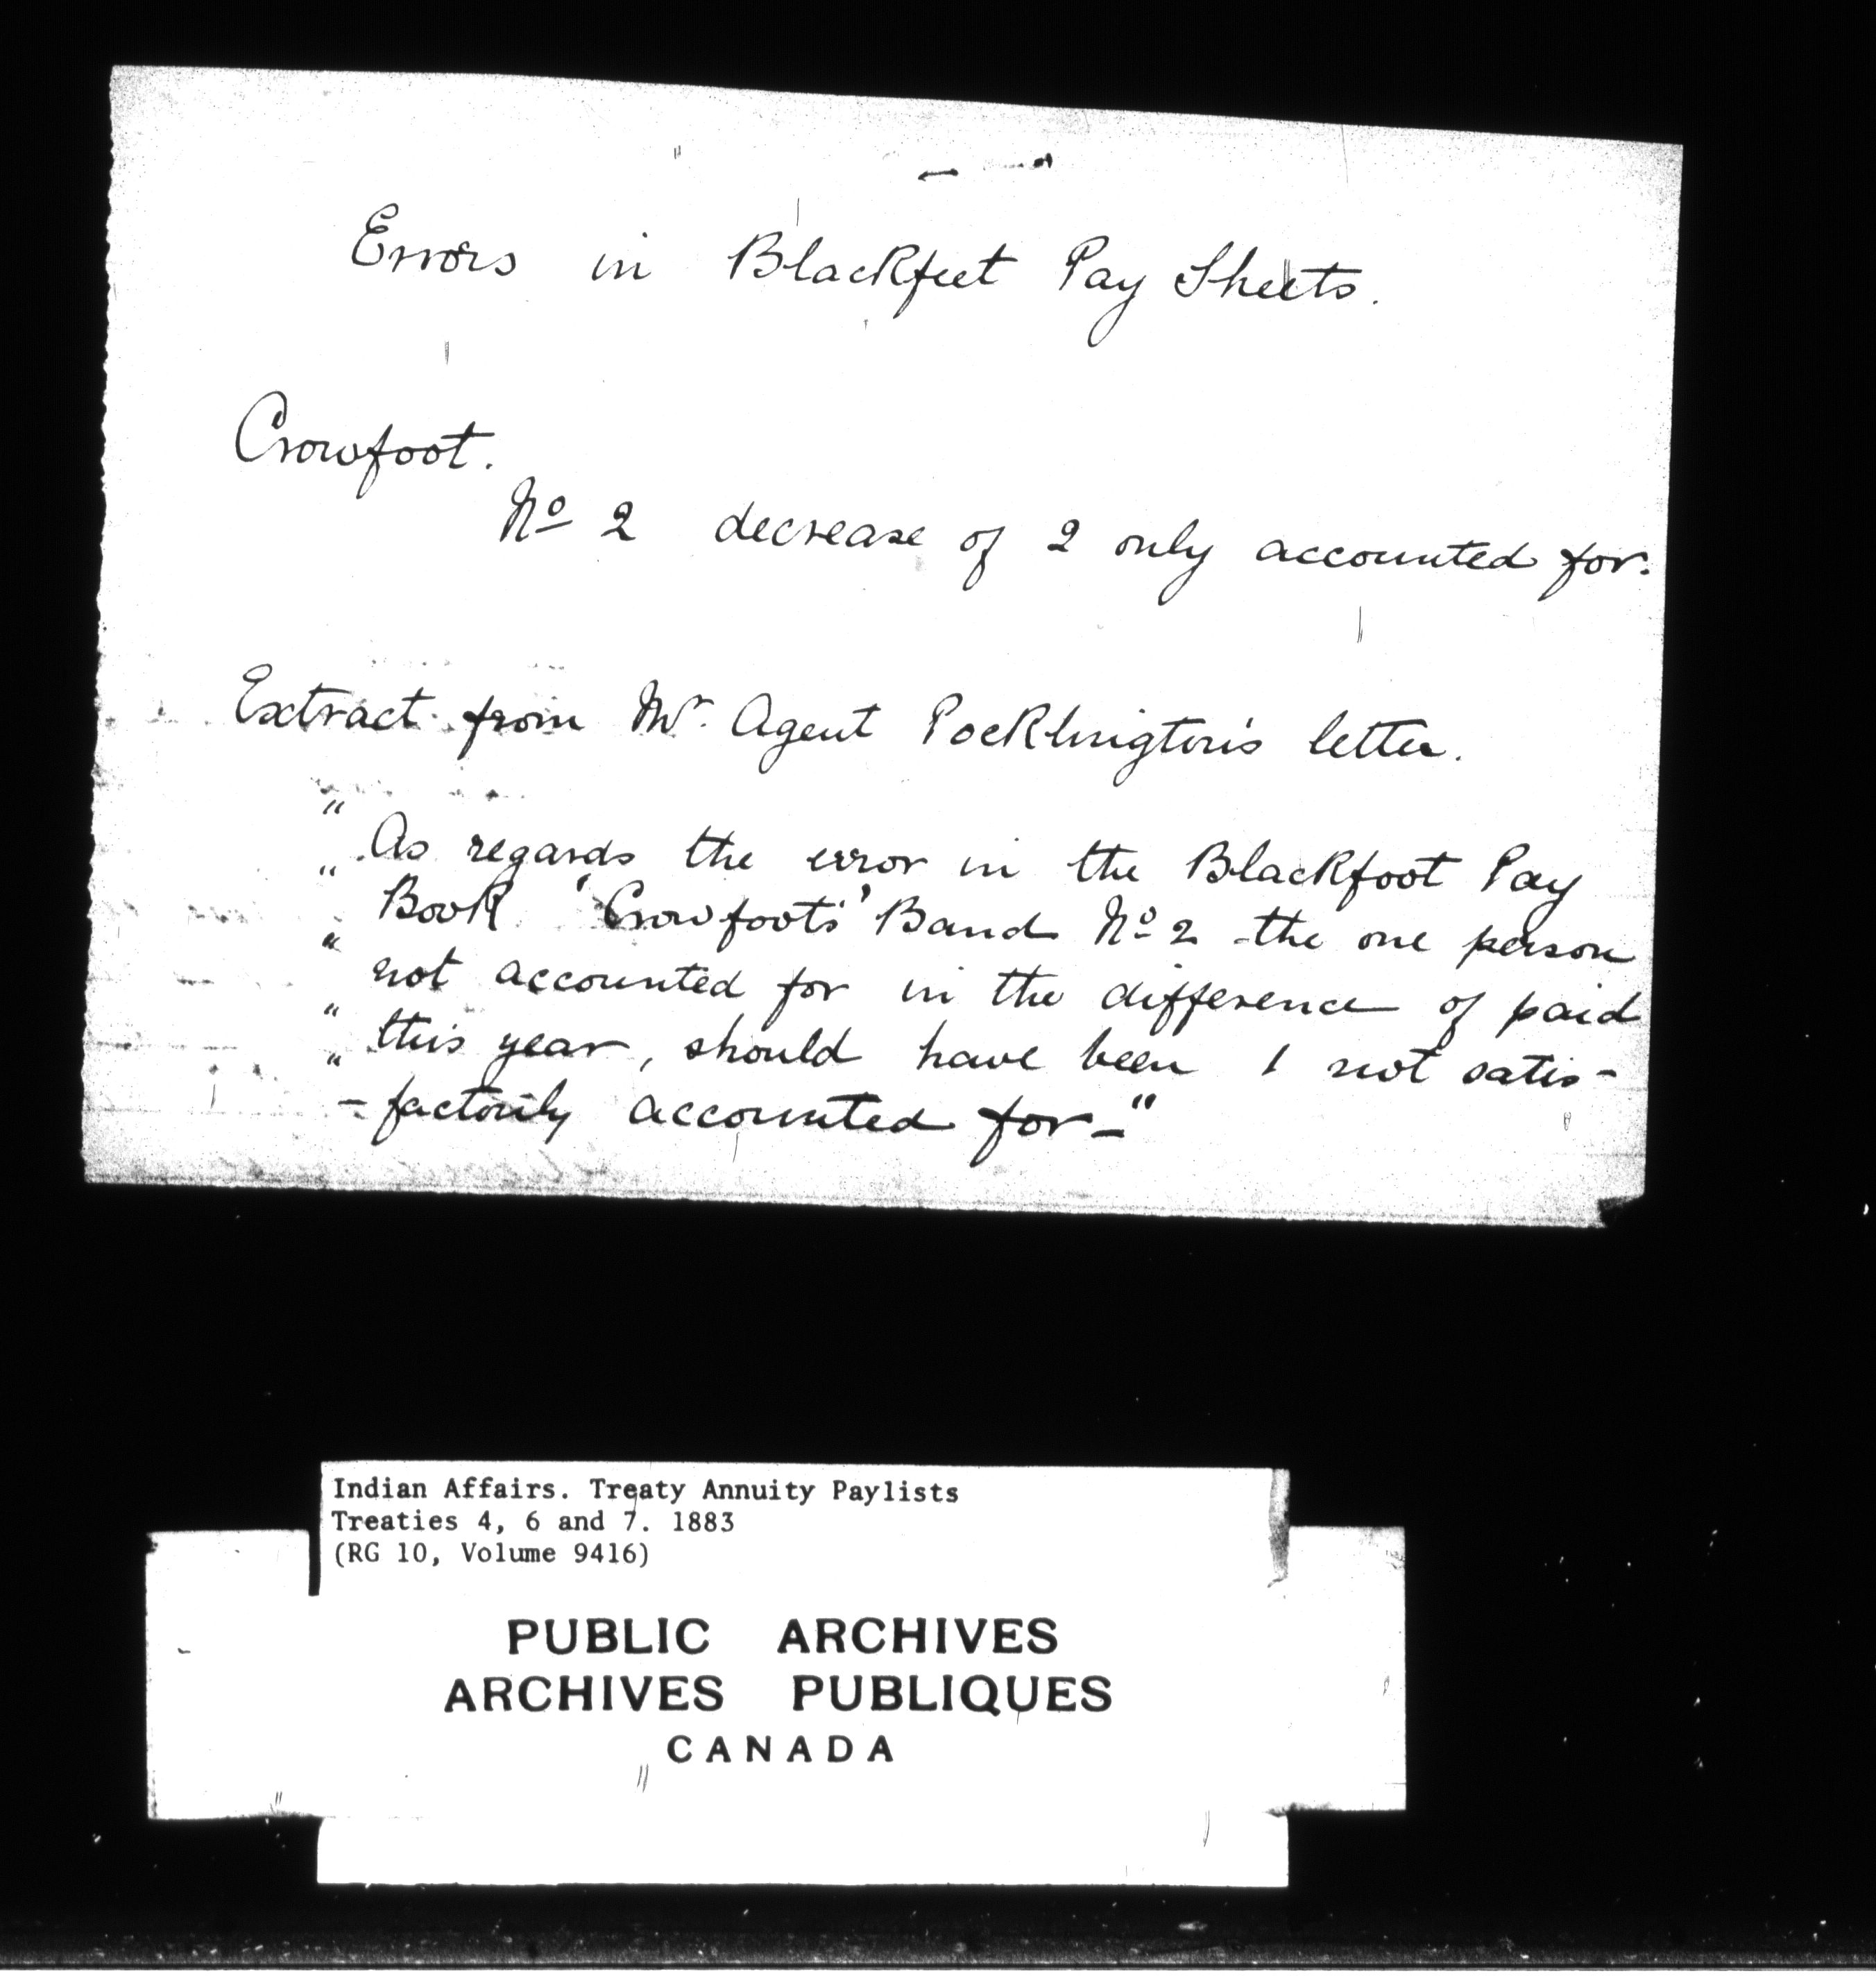 Errors in Blackfeet Pay Sheets.
Crowfoot.
No 2 decrease of 2 only accounted for.
Extract from Mr. Agent Pocklington's letter.
"
" As regards the error in the Blackfoot Pay
" Book 'Crowfoot's' Band No 2 - the one person
" not accounted for in the difference of paid
" this year, should have been 1 not satis-
- factorily accounted for - "
Indian Affairs. Treaty Annuity Paylists
Treaties 4, 6 and 7. 1883
(RG 10, Volume 9416)
PUBLIC ARCHIVES
ARCHIVES PUBLIQUES
CANADA